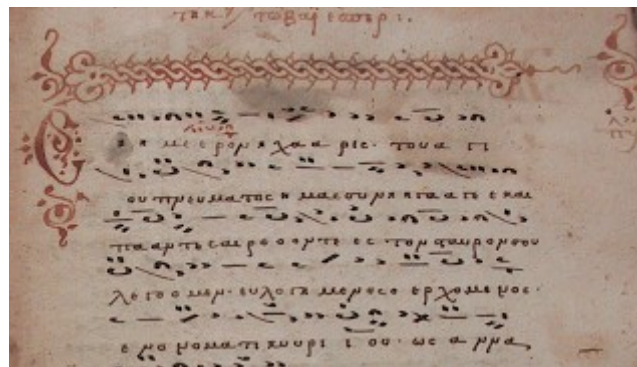 Ση η με ε ρον η χα α ρις· του α γι
ου πνευματος η μας συ νη γα α γε ε και
πα αν τε ες αι ρο ο οντε ες τον σταυρον σου
λε γο ο μεν· ευλογη μενος ο ερχομενος·
ε νο νοματι κυρι ι ου· ως α ννα